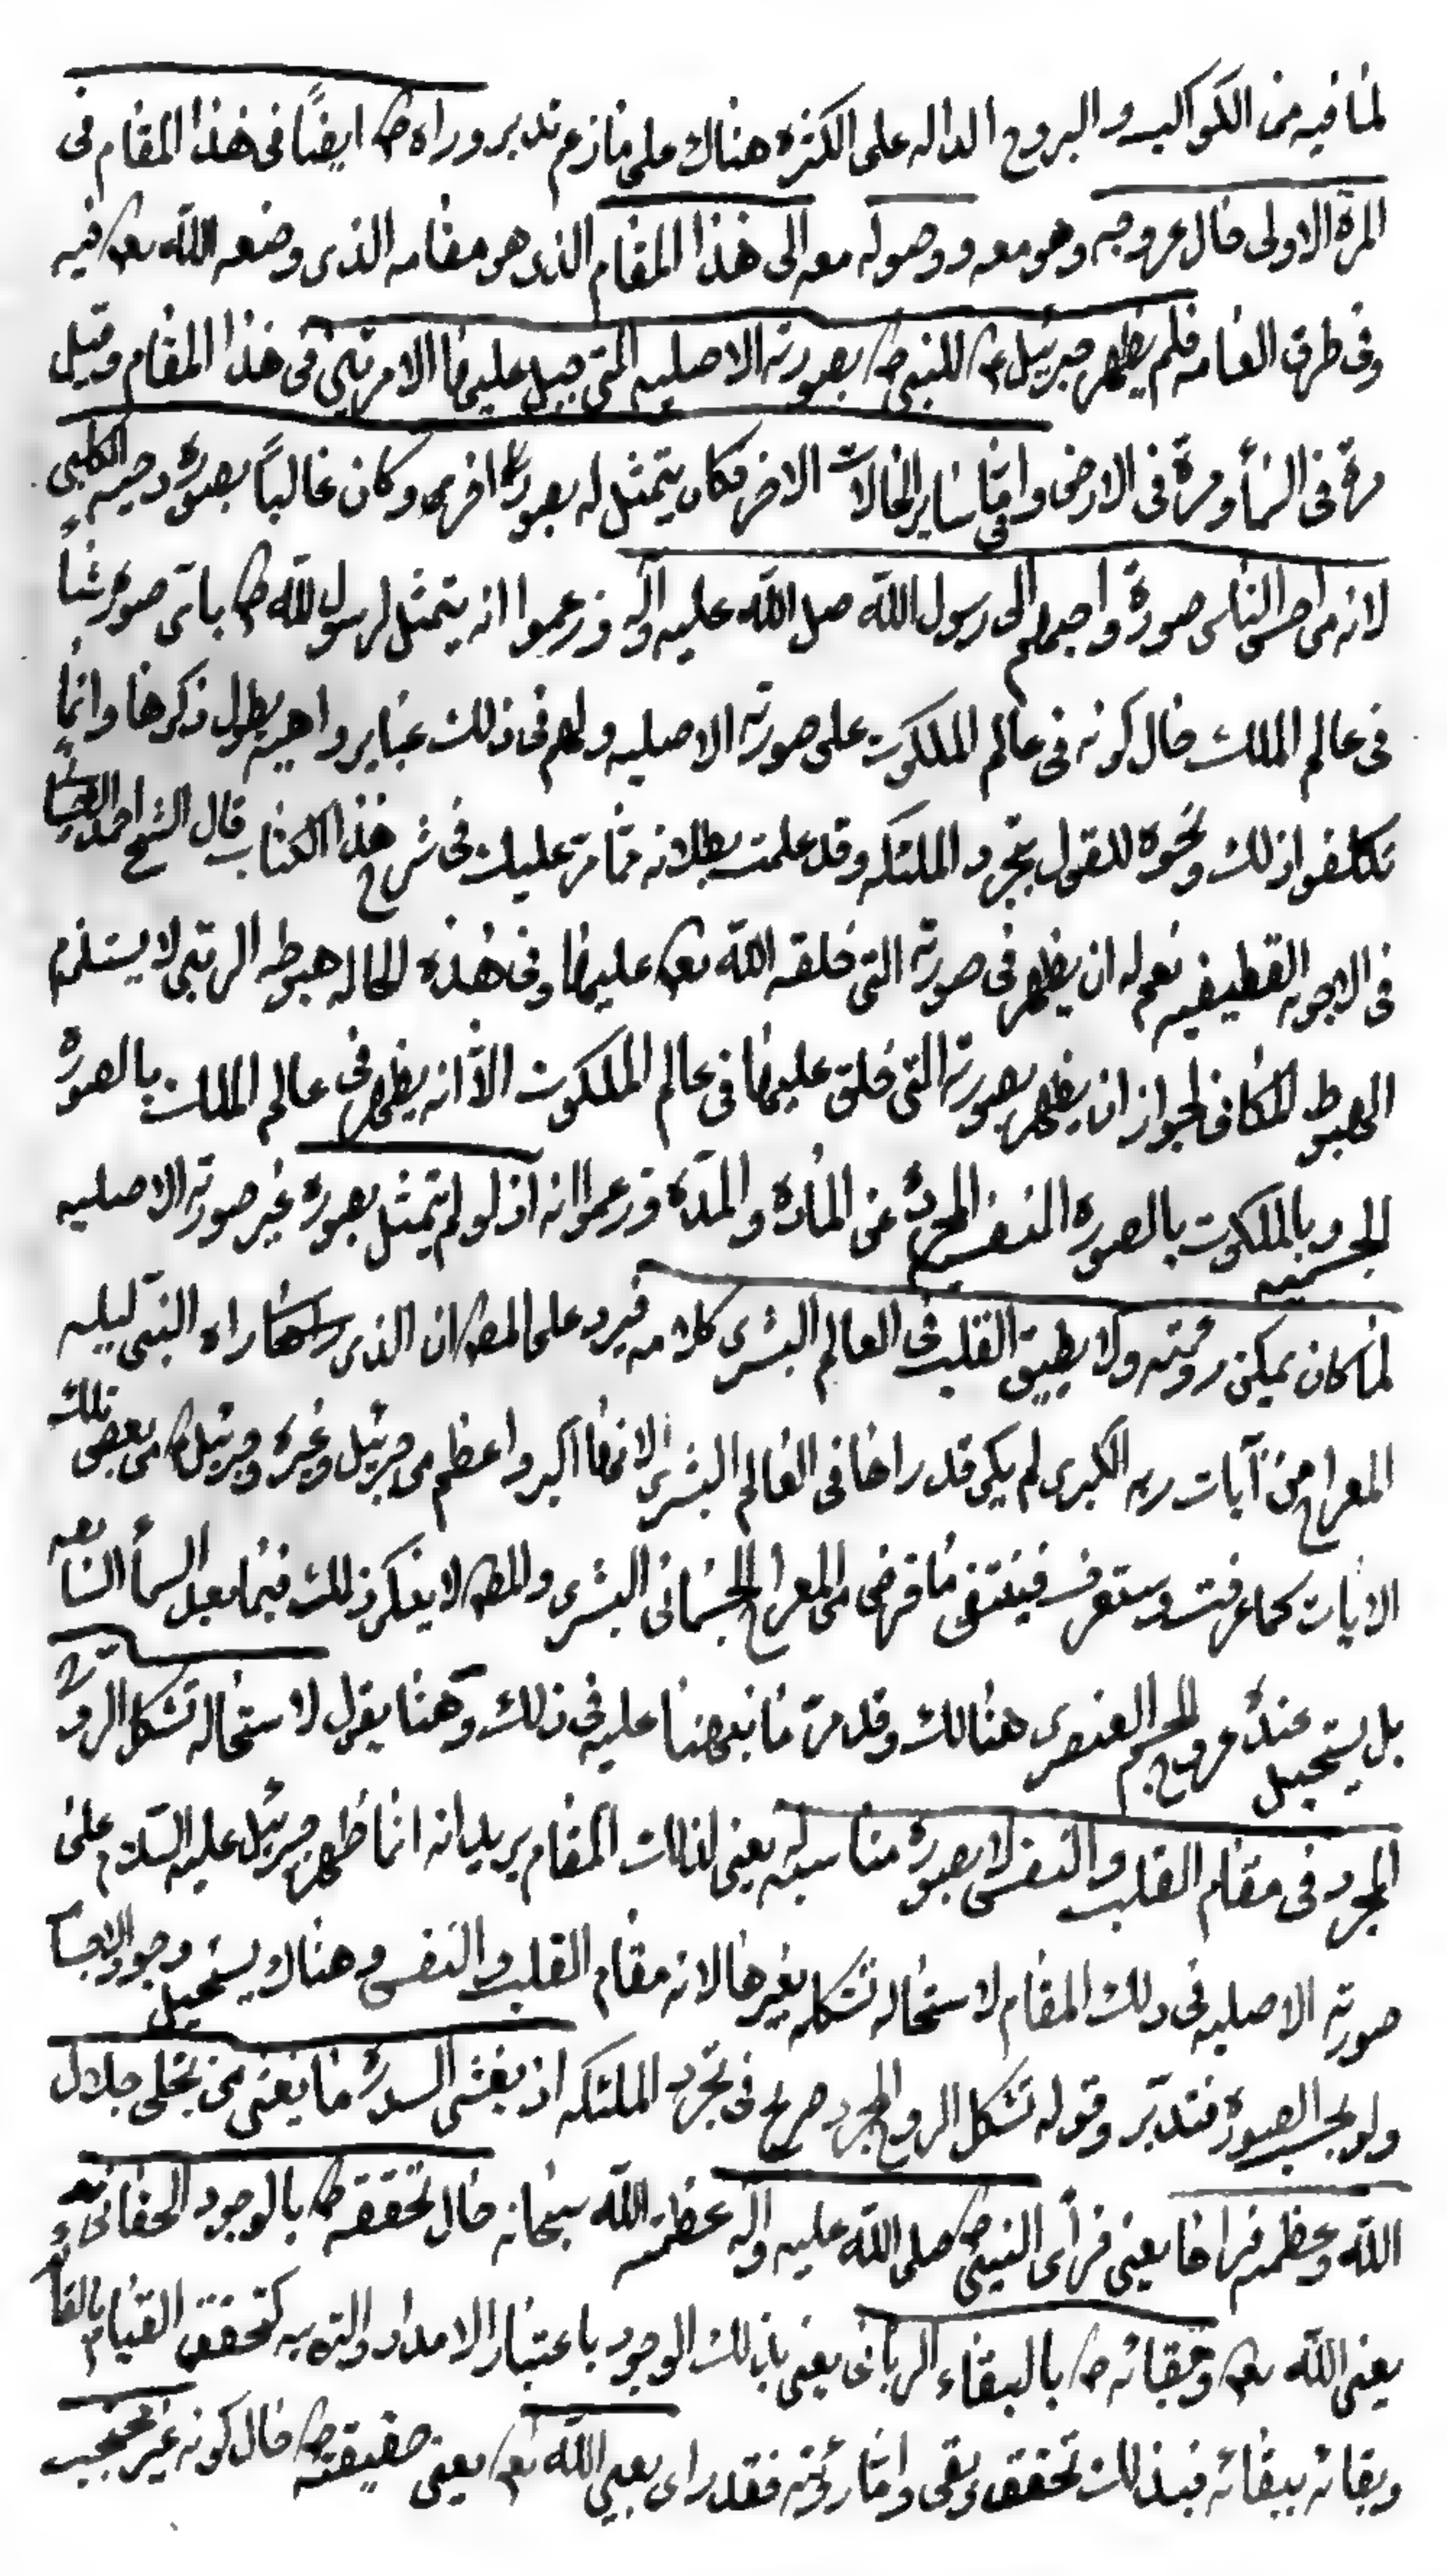 لما فيه من الكواكب و البروج الداله على الكثره هناك على ما زعم تدبر وراه ص ايضاً فى هذا المقام فى
المرة الاولى حال عروجه وهو معه و وصوله معه الى هذا المقام الذى هو مقامه الذى وضعه الله تعه فيه
وفى طرق العامه فلم يظهر جبرئيل ع للنبى ص بصورته الاصليه التى جبل عليها الا مرتين فى هذا المقام وقيل
مرة فى السمأ ومرة فى الارض واما فى ساير الحالات الاخر فكان يتمثل له بصورة اخرى وكان غالباً بصورة دحيه الكلبى
لانه من احسن الناس صورة واجملهم الى رسول الله صلى الله عليه وآله وزعموا انه يتمثل لرسول الله ص باى صورة شاء
فى عالم الملك حال كونه فى عالم الملكوت على صورته الاصليه ولهم فى ذلك عباير واهيه يطول ذكرها وانما
تكلفوا ذلك ونحوه للقول بتجرد الملئكه وقد علمت بطلانه مما مر عليك فى شرح هذا الكتاب قال الشيخ احمد
فى الاجوبه القطيفيه نعم له ان يظهر فى صورته التى خلقه الله تعه عليها وفى هذه الحاله هبوطه الرتبى لا يستلزم
الهبوط المكانى لجواز ان يظهر بصورته التى خلق عليها فى عالم الملكوت الا انه يظهر فى عالم الملك بالصورة
الجسميه و بالملكوت بالصوره النفسيه المجردة عن المادة والمدة وزعموا انه اذ لو لم يتمثل بصوره غير صورته الاصليه
لما كان يمكن رؤيته ولا يطيق القلب فى العالم البشرى كلامه فيرد على المص ان الذى راه النبى ليله
المعراج من آيات ربه الكبرى لم يكن قد راها فى العالم البشرى لانها اكبر واعظم من جبرئيل وغيره وجبرئيل من بعض تلك
الايات كما عرفت وستعرف فينتفى ما فرض من المعراج الجسمانى البشرى والمص لا ينكر ذلك فيما بعد السمأ السابعه
بل يستحيل عنده عروج الجسم العنصرى هنالك وقد مر ما نبهنا عليه فى ذلك وهنا يقول لاستحاله تشكل الروح
المجرد فى مقام القلب والنفس الا بصورة مناسبه له يعنى لذلك المقام يريد انه انما ظهر جبرئيل عليه السلام على
صورته الاصليه فى ذلك المقام لاستحاله تشكله بغيرها لانه مقام القلب والنفس وهناك يستحيل وجود الاجسام
ولو بحسب الصورة فتدبر وقوله تشكل الروح المجرد صريح فى تجرد الملئكه اذ يغشى السدرة ما يغشى من تجلى جلال
الله وعظمته فراها يعنى فرأى النبى ص صلى الله عليه وآله عظمة الله سبحانه حال تحققه ص بالوجود الحقانى
يعنى الله تعه وبقائه ص بالبقاء الربانى يعنى بذلك الوجود باعتبار الامداد والتربيه كتحقق القيام بالقائم
وبقائه ببقائه فبذلك تحقق وبقى واما رؤيته فقد راى بعين الله تعه يعنى حقيقته ص حال كونه غير محتجب